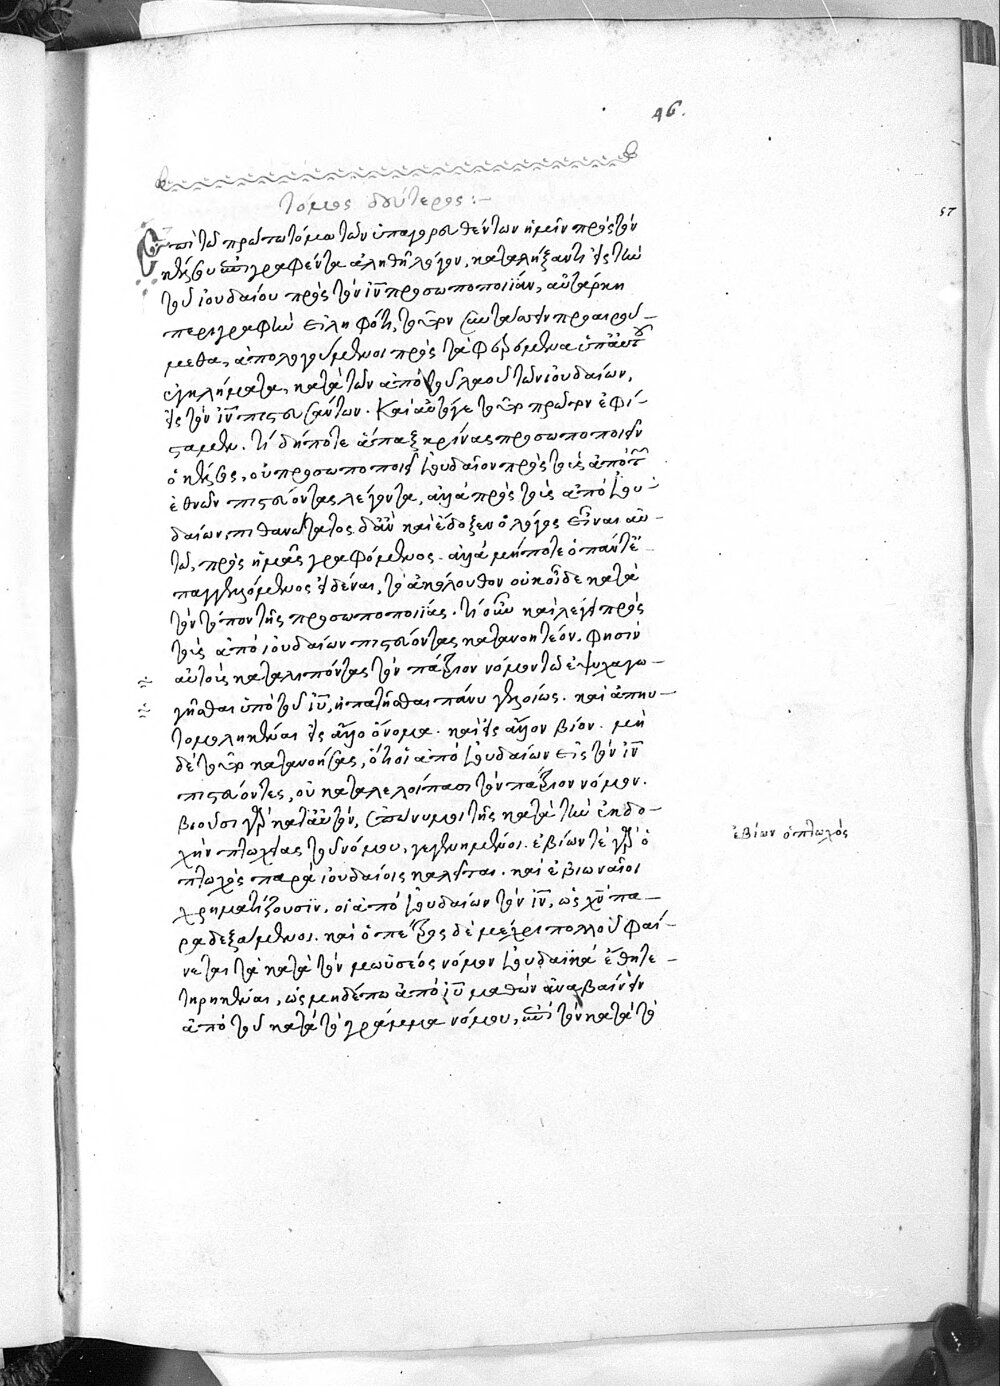 46.
57
τόμος δεύτερος :-
Ἐπὶ τῷ πρώτῳ τόμῳ τῶν ὑπαγορευθέντων ἡμῖν πρὸς τὸν
κέλσου ἐπιγραφέντα ἀληθῆ λόγον, καταλήξαντι εἰς τὴν
τοῦ ἰουδαίου πρὸς τὸν ἰν προσωποποιΐαν, αὐτάρκη
περιγραφὴν εἰληφότι, τοῦτον συντάσσειν προαιρού-
μεθα, ἀπολογούμενοι πρὸς τὰ φερόμενα ὑπ' αὐτοῦ
ἐγκλήματα, κατὰ τῶν ἀπὸ τοῦ λαοῦ τῶν ἰουδαίων,
εἰς τὸν ἰν πιστευσάντων. Καὶ αὐτό γε τοῦτο πρῶτον ἐφί-
σταμεν. τί δήποτε ἅπαξ κρίνας προσωποποιεῖν
ὁ κέλσος, οὐ προσωποποιεῖ ἰουδαῖον πρὸς τοὺς ἀπὸ τῶν
ἐθνῶν πιστεύοντας λέγοντα, ἀλλὰ πρὸς τοὺς ἀπὸ ἰου-
δαίων, πιθανώτατος δ' ἂν καὶ ἔδοξεν ὁ λόγος εἶναι αὐ-
τῷ, πρὸς ἡμᾶς γραφόμενος. ἀλλὰ μήποτε ὁ πάντ' ἐ-
παγγελλόμενος εἰδέναι, τὸ ἀκόλουθον οὐκ οἶδε κατὰ
τὸν τόπον τῆς προσωποποιΐας. τί οὖν καὶ λέγει πρὸς
τοὺς ἀπὸ ἰουδαίων πιστεύοντας κατανοητέον. φησὶν
αὐτοὺς καταλιπόντας τὸν πάτριον νόμον τῷ ἐψυχαγω-
γῆσθαι ὑπὸ τοῦ ἰυ, ἠπατῆσθαι πάνυ γελοίως. καὶ ἀπηυ-
τομοληκέναι εἰς ἄλλο ὄνομα. καὶ εἰς ἄλλον βίον. μὴ
δὲ τοῦτο κατανοήσας, ὅτι οἱ ἀπὸ ἰουδαίων εἰς τὸν ἰν
πιστεύοντες, οὐ καταλελοίπασι τὸν πάτριον νόμον.
βιοῦσι γὰρ κατ' αὐτὸν, ἐπώνυμοι τῆς κατὰ τὴν ἐκδο-
χὴν πτωχείας τοῦ νόμου, γεγενημένοι. ἐβίων τε γὰρ ὁ
πτωχὸς παρὰ ἰουδαίοις καλεῖται. καὶ ἐβιωναῖοι
χρηματίζουσιν, οἱ ἀπὸ ἰουδαίων τὸν ἰν, ὡς χν πα-
ραδεξάμενοι. καὶ ὁ πέτρος δὲ μέχρι πολλοῦ φαί-
νεται τὰ κατὰ τὸν μωϋσέως νόμον ἰουδαϊκὰ ἔθη τε-
τηρηκέναι, ὡς μηδέπω ἀπὸ ἰυ μαθὼν ἀναβαίνειν
ἀπὸ τοῦ κατὰ τὸ γράμμα νόμου, ἐπὶ τὸν κατὰ τὸ
ἐβίων ὁ πτωχὸς